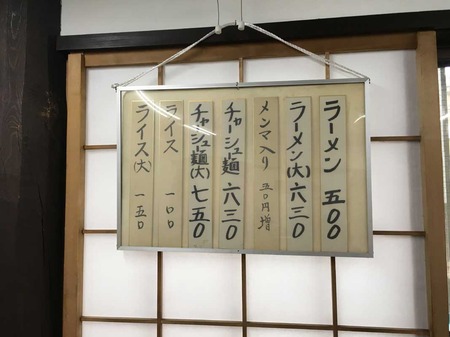 ラーメン 五〇〇
ラーメン(大) 六三〇
メンマ入り 五〇円増
チャーシュ麺 六三〇
チャーシュ麺(大) 七五〇
ライス 一〇〇
ライス(大) 一五〇